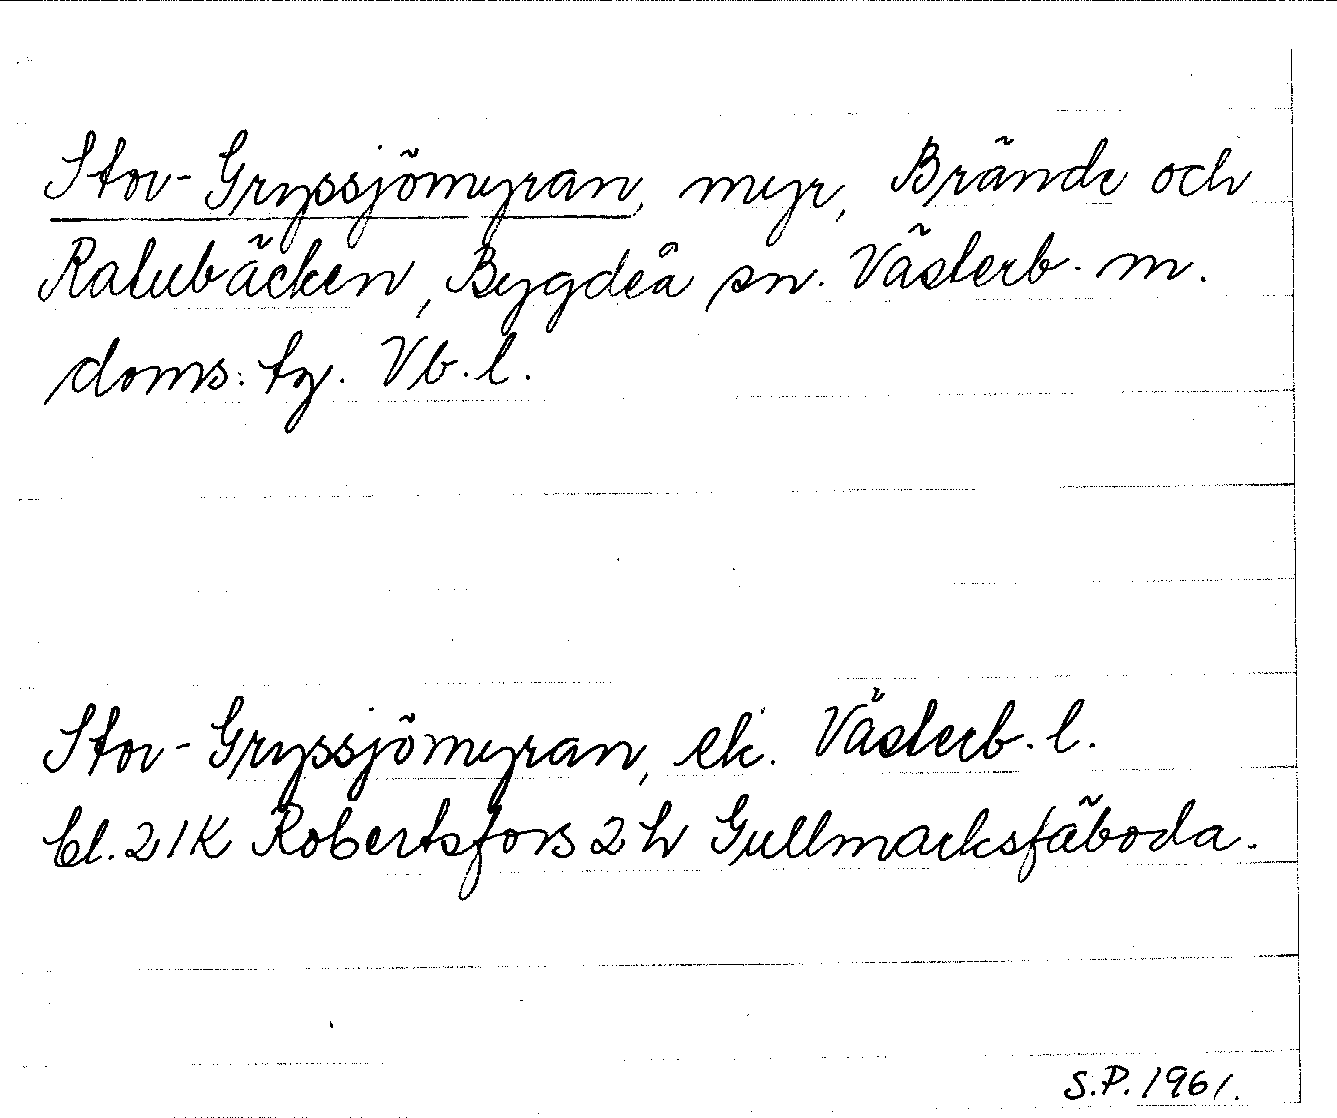 Stor-Gryssjömyran, myr, Brände och
Ratubäcken, Bygdeå sn. Västerb. m.
doms. tg. Vb. l.
Stor-Gryssjömyran, ek. Västerb. l.
bl. 21K Robertsfors 2 h Gullmarksfäboda.
S.P. 1961.